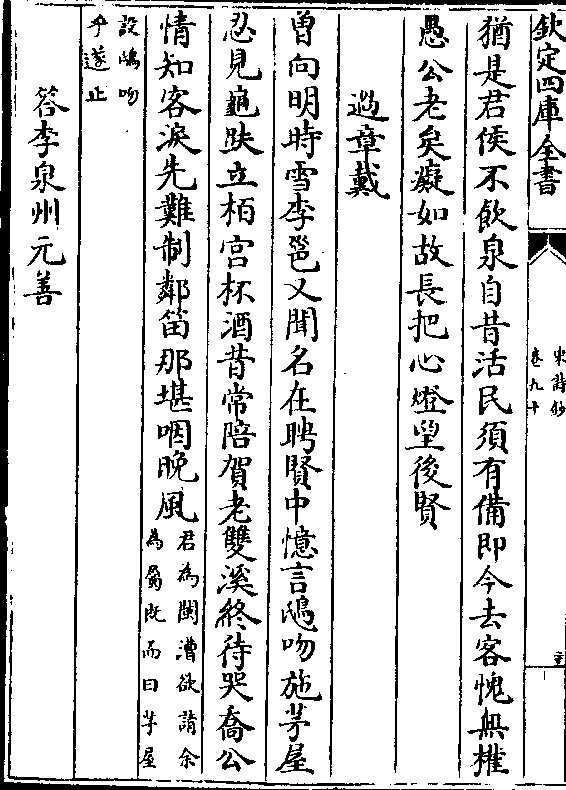 欽定四庫全書
宋詩鈔
卷九十
猶是君侯不飲泉自昔活民須有備即今去客愧無權
愚公老矣癡如故長把心燈望後賢
過章戴
曾向明時雪李邕又聞名在聘賢中憶言鴟吻施茅屋
忍見龜趺立栢宫杯酒昔常陪賀老雙溪終待哭喬公
情知客淚先難制鄰笛那堪咽晚風
君為閩漕欲請余
為屬既而曰茅屋
設鴟吻
乎遂止
答李泉州元善